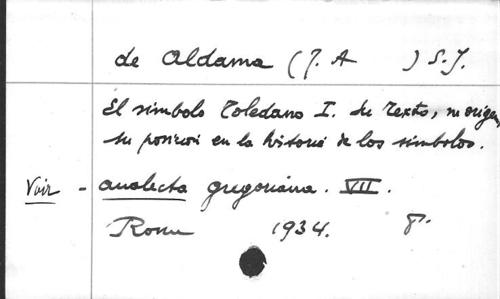 de Aldama (J. A ) S. J.
El simbolo Toledano I. Su texto, su origen,
su posicion en la historia de los simbolos.
Voir - analecta gregoriana. VII.
Rome 1934. 8°.